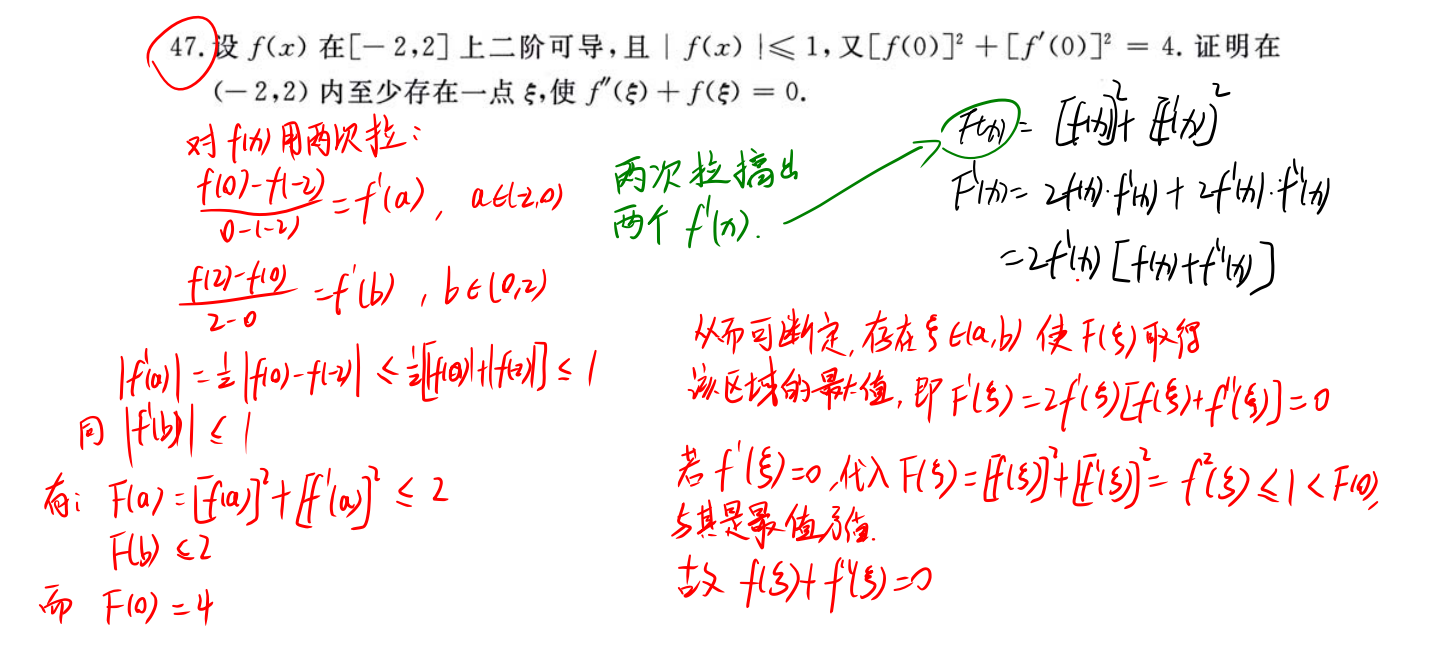 47. 设 f(x) 在[－2,2]上二阶可导,且 | f(x) |≤ 1,又[f(0)]² + [f′(0)]² = 4. 证明在
(－2,2) 内至少存在一点 ξ,使 f″(ξ) + f(ξ) = 0.
对 f(x) 用两次拉:
(f(0)-f(-2))/(0-(-2)) = f'(a), a∈(-2,0)
(f(2)-f(0))/(2-0) = f'(b), b∈(0,2)
|f'(a)| = 1/2 |f(0)-f(-2)| ≤ 1/2[|f(0)|+|f(2)|] ≤ 1
同 |f'(b)| ≤ 1
有: F(a) = [f(a)]² + [f'(a)]² ≤ 2
F(b) ≤ 2
而 F(0) = 4
两次拉搞出
两个 f'(x).
F(x) = [f(x)]² + [f'(x)]²
F'(x) = 2f(x)·f'(x) + 2f'(x)·f''(x)
= 2f'(x) [f(x)+f''(x)]
从而可断定, 存在 ξ∈(a,b) 使 F(ξ) 取得
该区域的最大值, 即 F'(ξ) = 2f'(ξ)[f(ξ)+f''(ξ)] = 0
若 f'(ξ)=0, 代入 F(ξ) = [f(ξ)]² + [f'(ξ)]² = f²(ξ) ≤ 1 < F(0),
与其是最值矛盾.
故 f(ξ) + f''(ξ) = 0